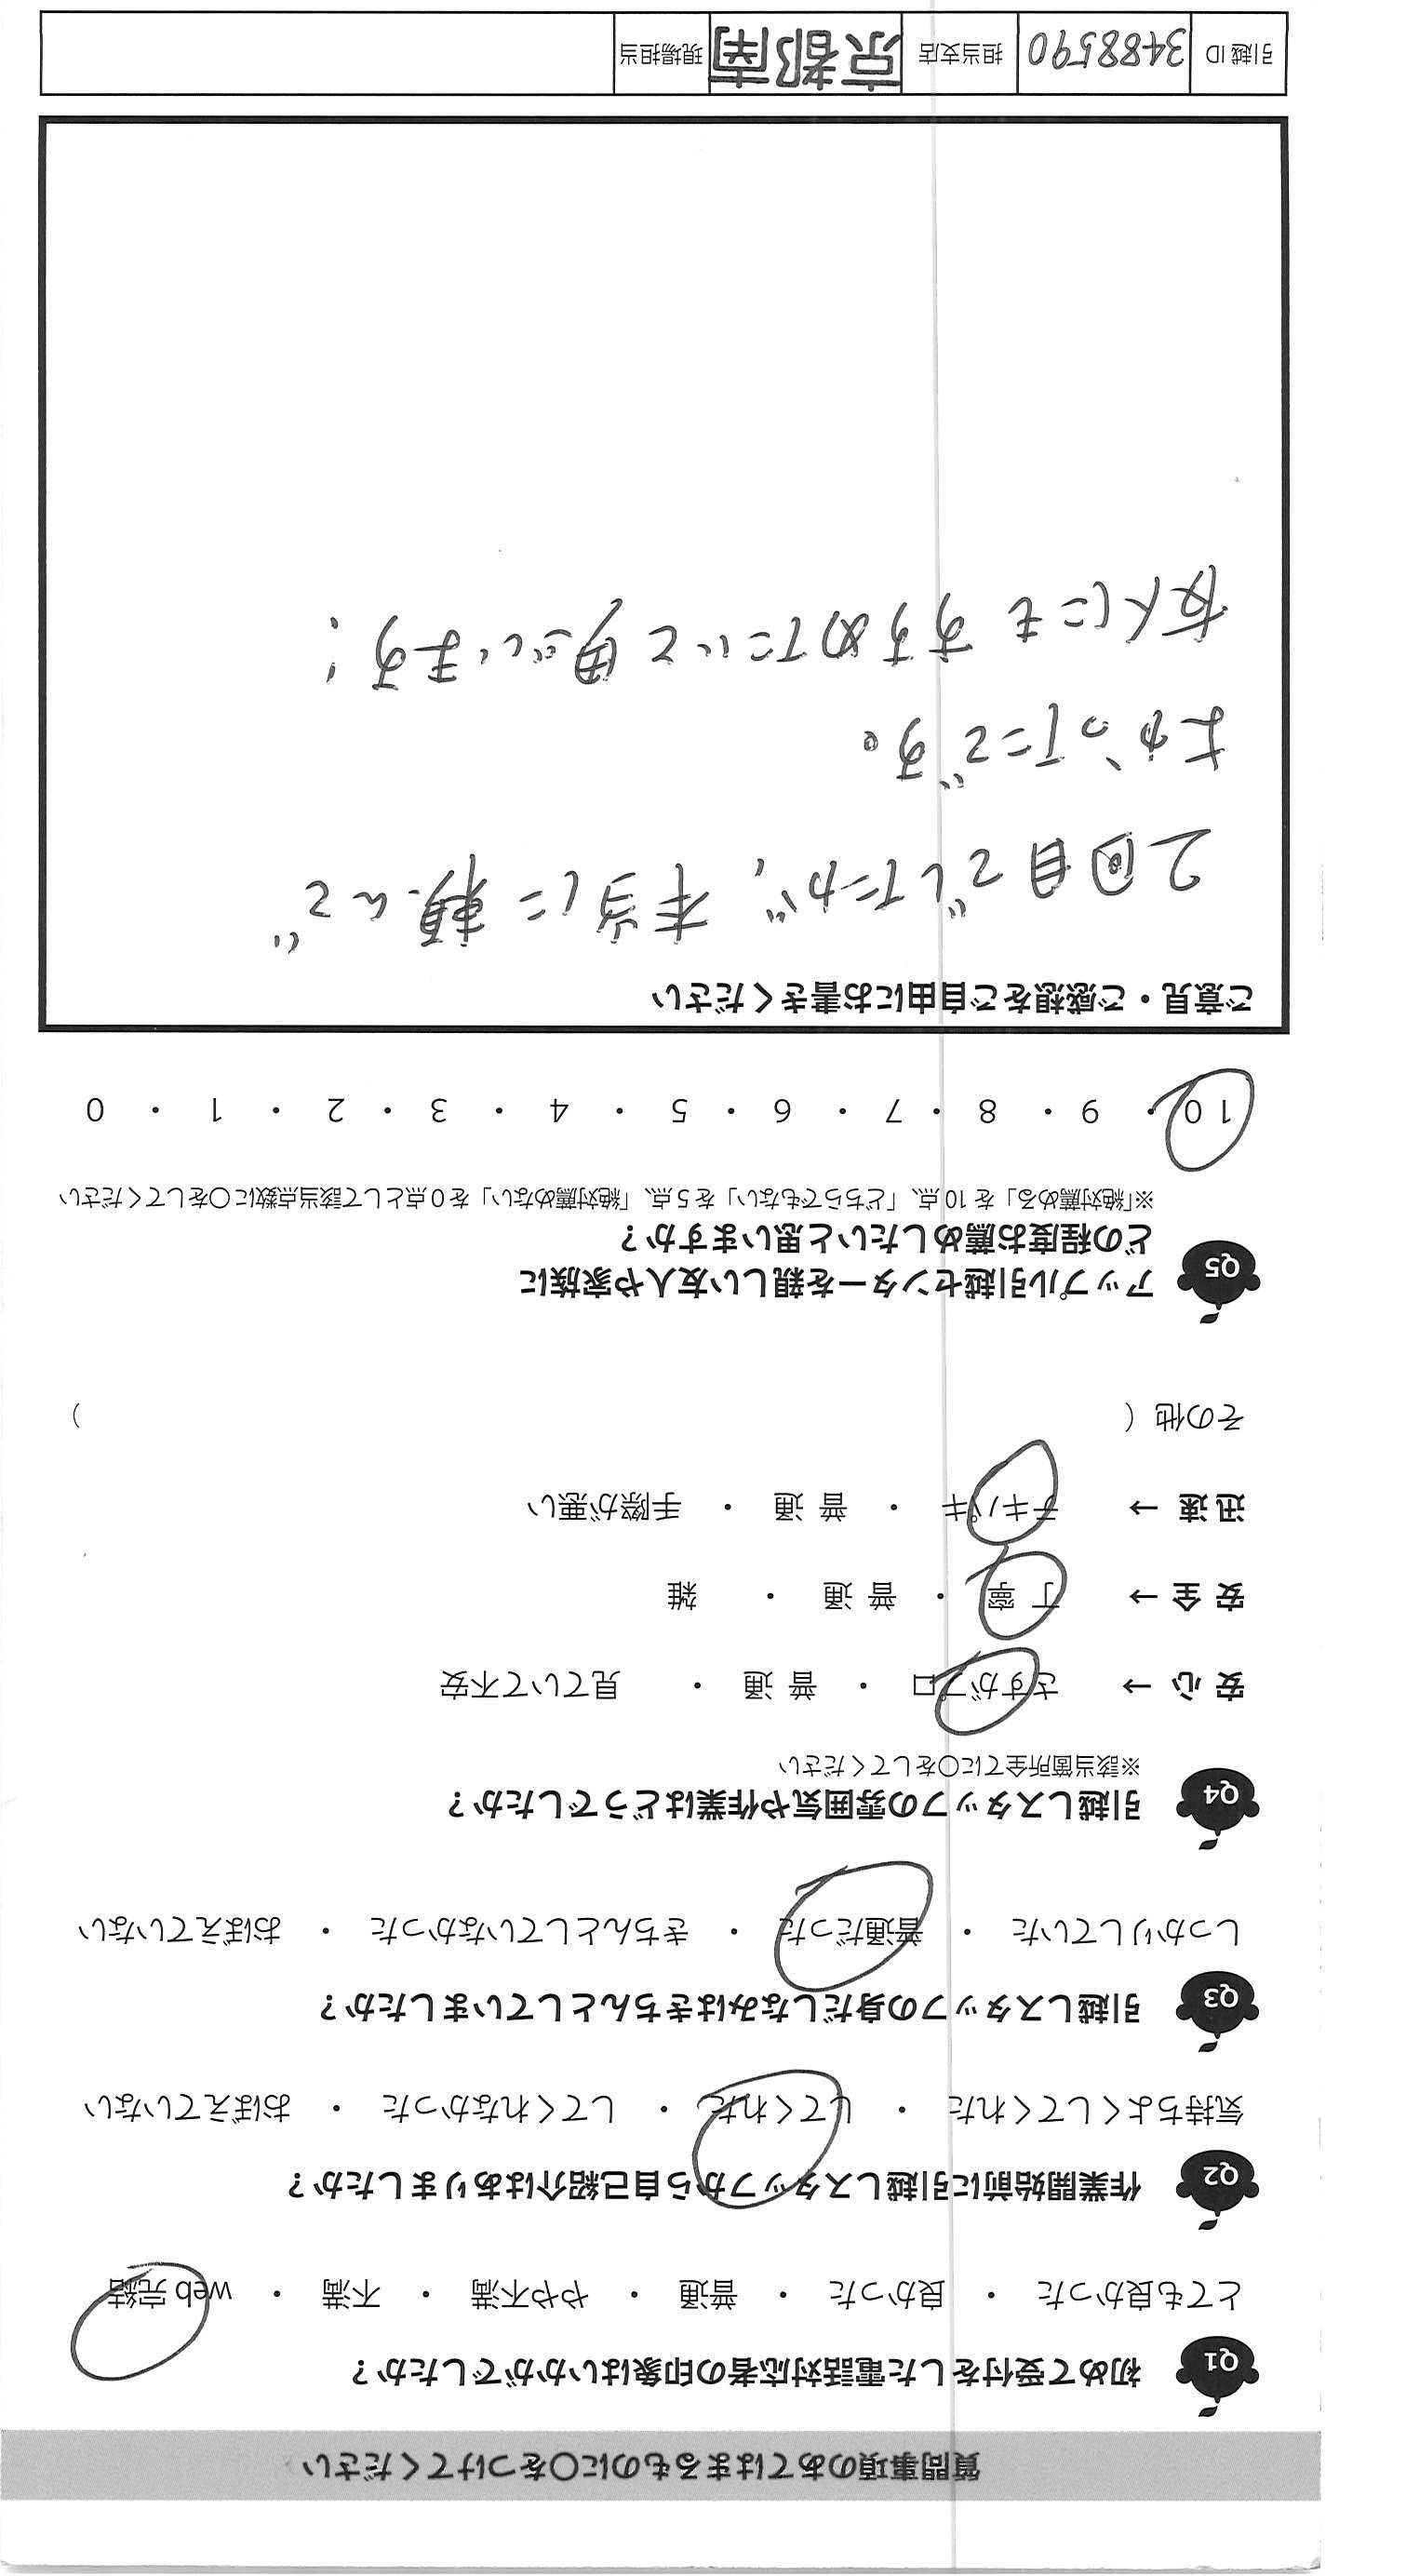 質問事項のあてはまるものに〇をつけてください
Q1 初めて受付をした電話対応者の印象はいかがでしたか？
とても良かった ・ 良かった ・ 普通 ・ やや不満 ・ 不満 ・ web 完結
Q2 作業開始前に引越しスタッフから自己紹介はありましたか？
気持ちよくしてくれた ・ してくれた ・ してくれなかった ・ おぼえていない
Q3 引越しスタッフの身だしなみはきちんとしていましたか？
しっかりしていた ・ 普通だった ・ きちんとしていなかった ・ おぼえていない
Q4 引越しスタッフの雰囲気や作業はどうでしたか？
※該当箇所全てに〇をしてください
安 心 → さすがプロ ・ 普 通 ・ 見ていて不安
安 全 → 丁 寧 ・ 普 通 ・ 雑
迅 速 → テキパキ ・ 普 通 ・ 手際が悪い
その他 （ ）
Q5 アップル引越センターを親しい友人や家族に
どの程度お薦めしたいと思いますか？
※「絶対薦める」を 10 点、「どちらでもない」を 5 点、「絶対薦めない」を 0 点として該当点数に〇をしてください
10 ・ 9 ・ 8 ・ 7 ・ 6 ・ 5 ・ 4 ・ 3 ・ 2 ・ 1 ・ 0
ご意見・ご感想をご自由にお書きください
2回目でしたが、本当に頼んで
よかったです。
友人にもすすめたいと思います！
引越 ID 3488590 担当支店 京都南 現場担当